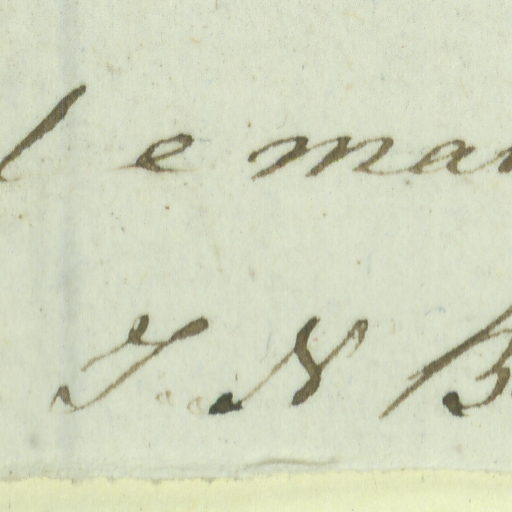 l e mar
J N B